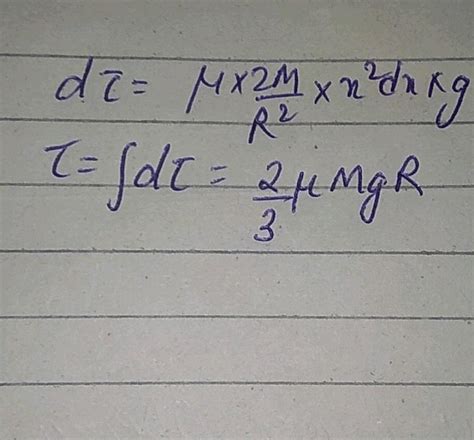 dτ = μ × 2M/R² × x²dx × g
τ = ∫dτ = 2/3 μMgR